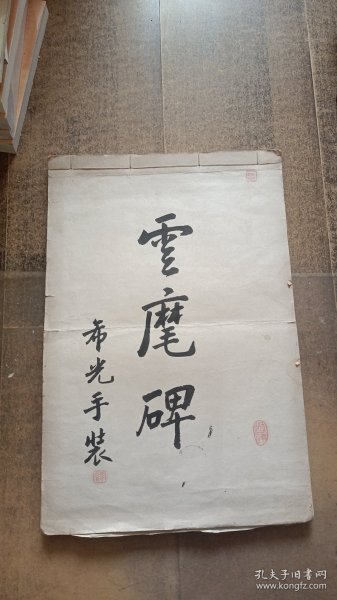 雲麾碑
希光手裝
孔夫子旧书网
www.kongfz.com